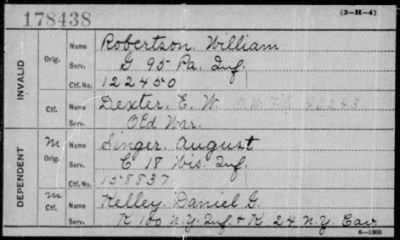 178438
(3-H-4)
INVALID
Orig. Name Robertson William
Serv. G 95 Pa. Inf.
Ctf. No. 122450
Ctf. Name Dexter, E. W.
Serv. Old War.
DEPENDENT
M Orig. Name Singer, August
Serv. C 18 Wis. Inf.
Ctf. No. 158837
M Ctf. Name Kelley, Daniel G.
Serv. K 100 N.Y. Inf. & K 24 N.Y. Cav